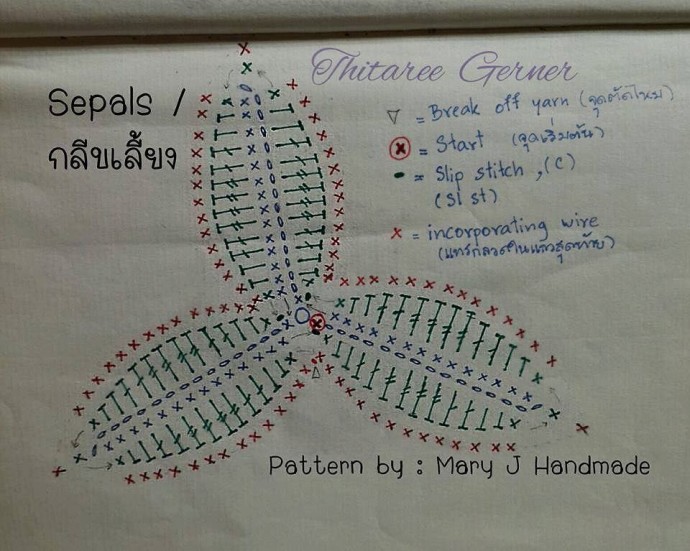 Thitaree Gerner
Sepals /
กลีบเลี้ยง
= Break off yarn (จุดตัดไหม)
= Start (จุดเริ่มต้น)
= Slip stitch , (C)
(Sl st)
x = incorporating wire
Pattern by : Mary J Handmade